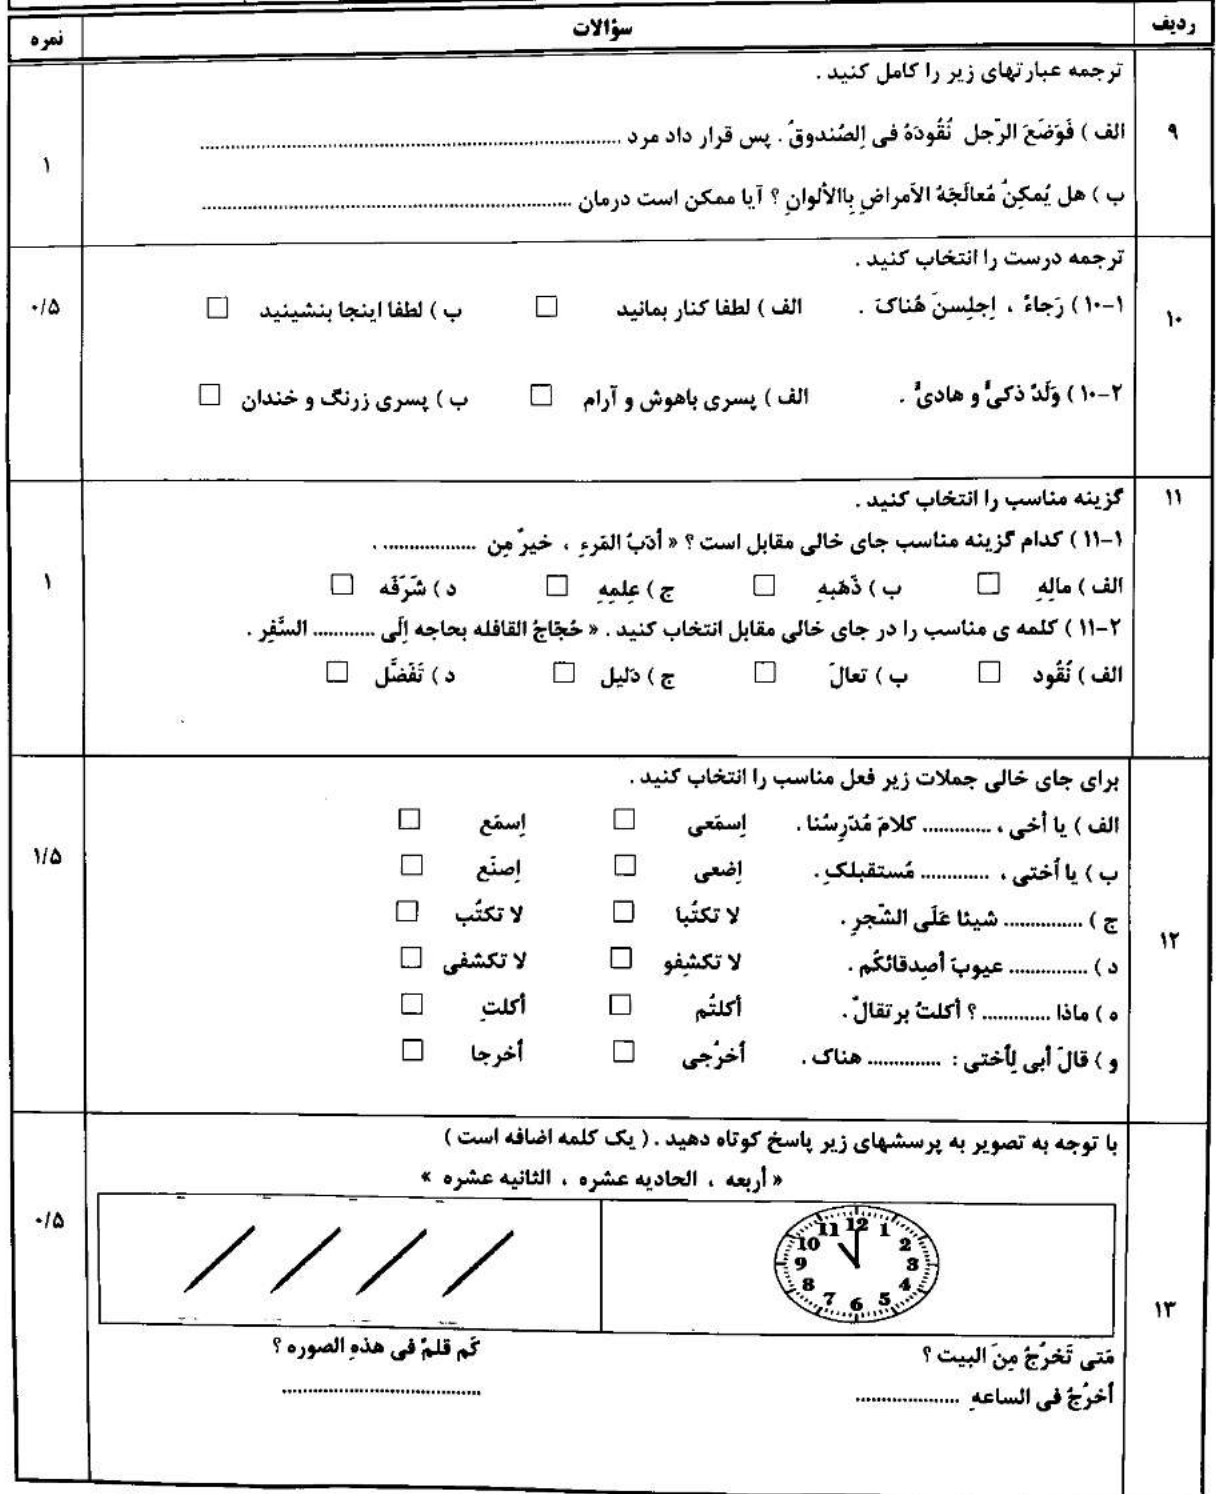 ردیف سؤالات نمره
ترجمه عبارتهای زیر را کامل کنید .
۹ الف ) فَوَضَعَ الرّجل نُقُودَهُ فی اِلصُندوقُ . پس قرار داد مرد ......................................................
۱
ب ) هل یُمکِنُ مُعالَجَهُ الاَمراضِ بِاالألوانِ ؟ آیا ممکن است درمان ......................................................
ترجمه درست را انتخاب کنید .
۱۰ ۱-۱۰ ) رَجاءً ، اِجلِسنَ هُناکَ . الف ) لطفا کنار بمانید □ ب ) لطفا اینجا بنشینید □ ۰/۵
۲-۱۰ ) وَلَدٌ ذکیٌّ و هادیٌ . الف ) پسری باهوش و آرام □ ب ) پسری زرنگ و خندان □
۱۱ گزینه مناسب را انتخاب کنید .
۱-۱۱ ) کدام گزینه مناسب جای خالی مقابل است ؟ « أدَبُ المَرءِ ، خیرٌ مِن .................. .
الف ) مالِهِ □ ب ) ذَهَبهِ □ ج ) عِلمِهِ □ د ) شَرَفَه □ ۱
۲-۱۱ ) کلمه ی مناسب را در جای خالی مقابل انتخاب کنید . « حُجّاجُ القافله بحاجه اِلَی ............ السَّفِر .
الف ) نُقُود □ ب ) تعالَ □ ج ) دَلیل □ د ) تَفَضَّل □
برای جای خالی جملات زیر فعل مناسب را انتخاب کنید .
الف ) یا أخی ، ............. کلامَ مُدَرِسُنا . اِسمَعی □ اِسمَع □
ب ) یا اُختی ، ............. مُستقبلکِ . اِضعی □ اِصنَع □ ۱/۵
ج ) ............... شیئا عَلَی الشَّجرِ . لا تکتُبا □ لا تکتُب □
۱۲
د ) ............... عیوبَ أصِدقائکُم . لا تکشِفو □ لا تکشفی □
ه ) ماذا ............. ؟ أکلتُ برتقالٌ . أکلتُم □ أکلتِ □
و ) قالَ أبی لِاُختی : .............. هناک . اُخرُجی □ اُخرجا □
با توجه به تصویر به پرسشهای زیر پاسخ کوتاه دهید . ( یک کلمه اضافه است )
« أربعه ، الحادیه عشره ، الثانیه عشره »
۰/۵
12 1 2 3 4 5 6 7 8 9 10 11
۱۳
مَتی تَخرُجُ مِنَ البیت ؟ کَم قلمٌ فی هذهِ الصوره ؟
أخرُجُ فی الساعهِ .................... ......................................